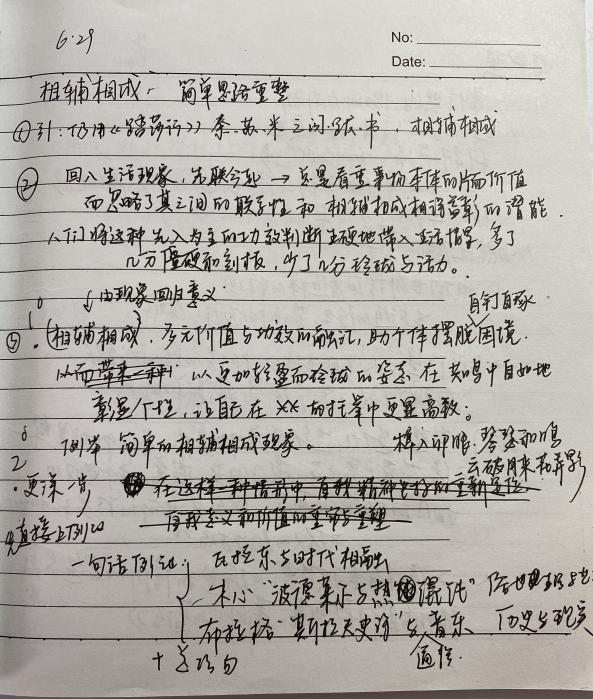 6.29
No:
Date:
相辅相成. 简单思路重整
① 引：仍用《踏莎行》秦.苏.米 之词.跋.书，相辅相成
② 回入生活现象，先联今弊 → 总是看重事物本体的片面价值
而忽略了其之间的联系性和相辅相成相得益彰的潜能.
人们将这种先入为主的功效判断生硬地带入生活，多了
几分僵硬和刻板，少了几分玲珑与活力。
↓由现象回归意义
③ 1. (相辅相成)，多元价值与功效的融汇，助个体摆脱困境.
以更加轻盈而玲珑的姿态 在共鸣中自如地
彰显个性，让自己在××的托举中更显高致；
例举 简单的相辅相成现象。
榫入卯眼 琴瑟和鸣
云破月来花弄影
2. 更深一步
在这样一种情形中，自我精神
自我意义和价值的重审与重塑
直接上例证
一句话例证：瓦拉东与时代相融
木心"波德莱尔与
布拉格"斯拉夫史诗"与音乐
历史与现实
+ 巧句
通俗.